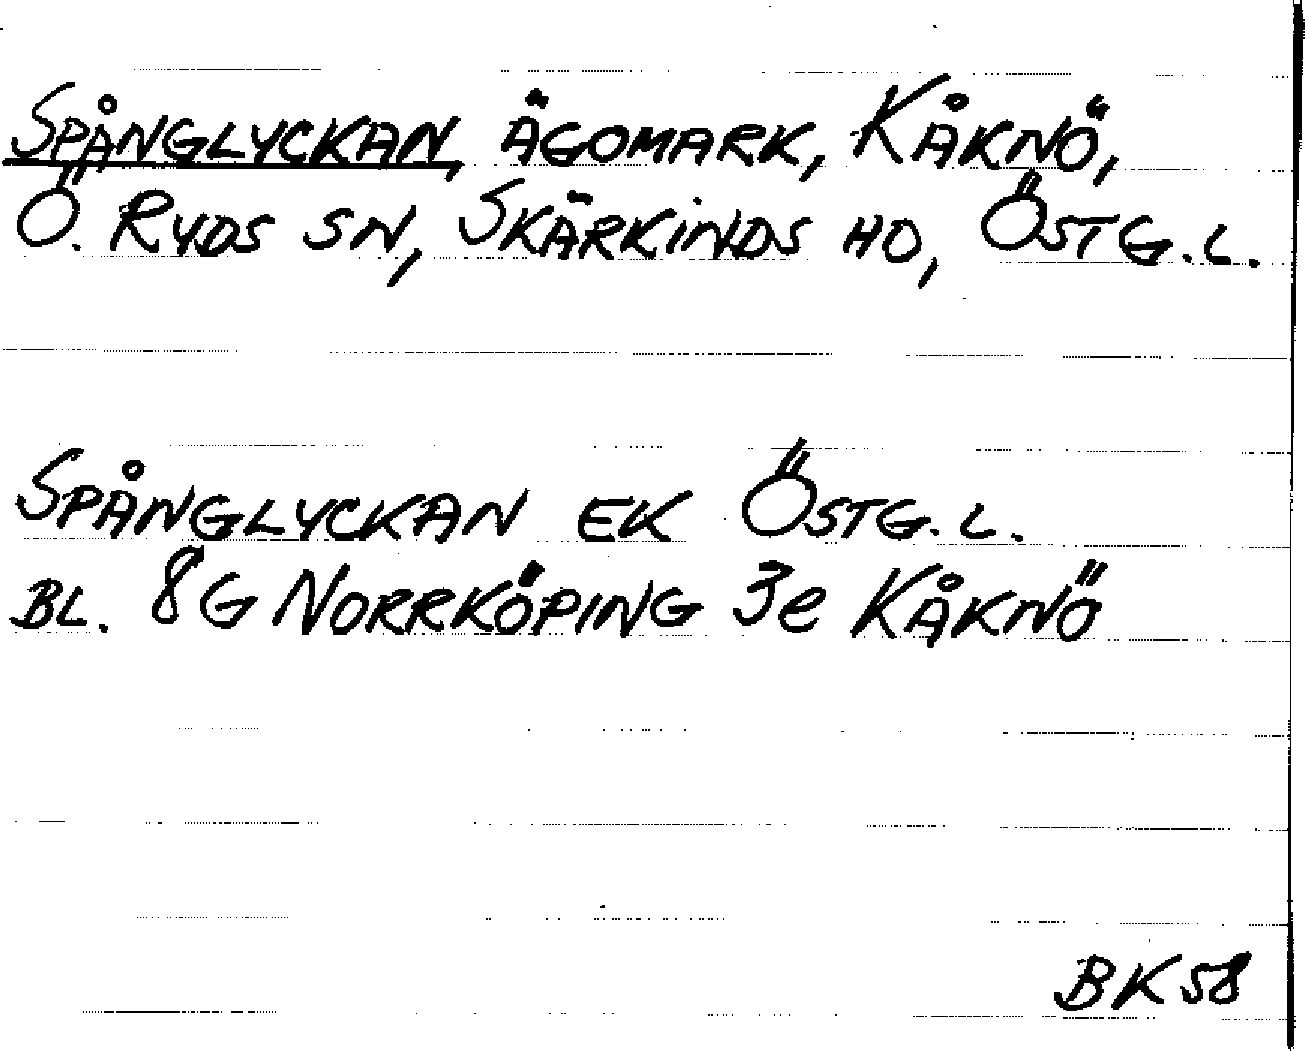 SPÅNGLYCKAN, ÄGOMARK, KÅKNÖ,
Ö. RYDS SN, SKÄRKINDS HD, ÖSTG. L.
SPÅNGLYCKAN EK ÖSTG. L.
BL. 8G NORRKÖPING 3e KÅKNÖ
BK 58